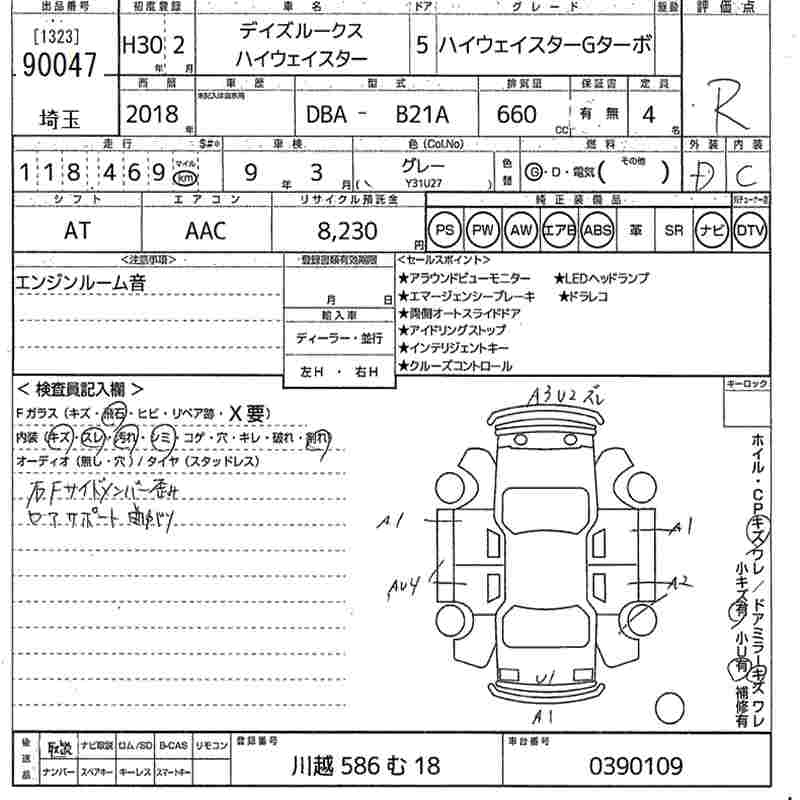 出品番号 初度登録 車名 ドア グレード 駆動 評価点
[1323] 90047 埼玉
H30年 2月 デイズルークス ハイウェイスター 5 ハイウェイスターGターボ R
西暦 車歴 型式 排気量 保証書 定員
2018年 未記入は自家用 DBA - B21A 660CC 有 無 4名
走行 $#* 車検 色(Col.No) 燃料 外装 内装
118469 マイル km 9年 3月 グレー ( Y31U27 ) 色替 G・D・電気( その他 ) D C
シフト エアコン リサイクル預託金 純正装備品
AT AAC 8,230円 PS PW AW エアB ABS 革 SR ナビ DTV
<注意事項> 登録書類有効期限 <セールスポイント>
エンジンルーム音
月 日
輸入車
ディーラー・並行
左H ・ 右H
★アラウンドビューモニター ★LEDヘッドランプ
★エマージェンシーブレーキ ★ドラレコ
★両側オートスライドドア
★アイドリングストップ
★インテリジェントキー
★クルーズコントロール
< 検査員記入欄 > キーロック
Fガラス (キズ・飛石・ヒビ・リペア跡・X要)
内装 (キズ・スレ・汚れ・シミ・コゲ・穴・キレ・破れ・割れ)
オーディオ (無し・穴) / タイヤ (スタッドレス)
右Fサイドメンバー歪み
ロアサポート曲がり
A3U2ズレ
A1 A1
AU4 A2
U1
A1
ホイル・CPキズワレ / ドアミラーキズワレ
小キズ有 小U有 補修有
後送品 取説 ナビ取説 ロム/SD B-CAS リモコン 登録番号 車台番号
ナンバー スペアキー キーレス スマートキー 川越 586 む 18 0390109